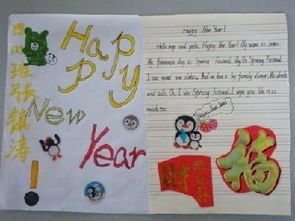 班张镇涛
Happy
New
Year
!
Happy New Year!
Hello boys and girls. Happy New Year! My name is
My favourite day is Spring Festival day. On Spring Festival
I can wear new clothes. And we have a big family dinner. We drink
and talk. Oh, I like Spring Festival. I hope you like it as
much too.
Happy New Year!
福